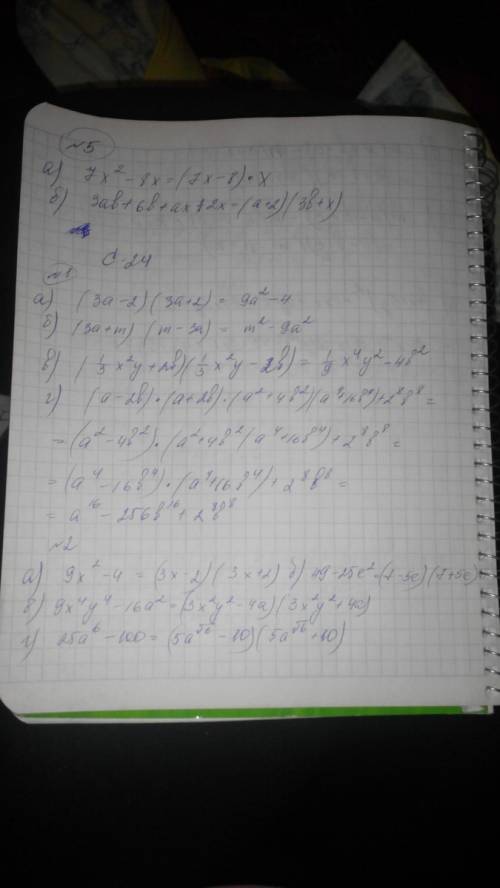 №5
а) 7x² - 8x = (7x - 8) · x
б) 3ab + 6b + ax + 2x = (a+2)(3b+x)
С-24
№1
а) (3a - 2)(3a + 2) = 9a² - 4
б) (3a+m) (m - 3a) = m² - 9a²
в) (⅓x²y + 2b)(⅓x²y - 2b) = 1/9 x⁴y² - 4b²
г) (a - 2b) · (a + 2b) · (a² + 4b²)(a⁴ + 16b⁴) + 2⁸b⁸ =
= (a² - 4b²) · (a² + 4b² (a⁴ + 16b⁴) + 2⁸b⁸ =
= (a⁴ - 16b⁴) · (a⁴ + 16b⁴) + 2⁸b⁸ =
= a¹⁶ - 256b¹⁶ + 2⁸b⁸
№2
а) 9x² - 4 = (3x - 2)(3x + 2) б) 49 - 25c² = (7 - 5c)(7 + 5c)
в) 9x⁴y⁴ - 16a² = (3x²y² - 4a)(3x²y² + 4a)
г) 25a⁶ - 100 = (5a^√6 - 10)(5a^√6 + 10)